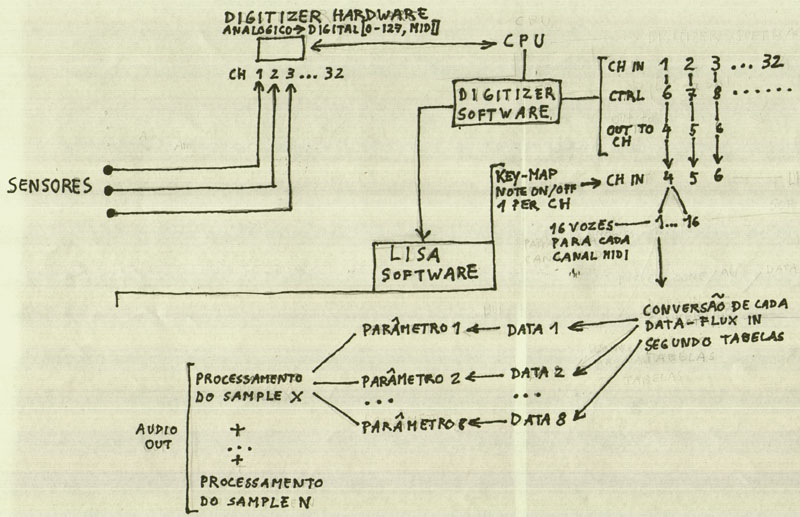 DIGITIZER HARDWARE
ANALOGICO → DIGITAL [0-127, MIDI]
CPU
CH 1 2 3 ... 32
DIGITIZER
SOFTWARE
CH IN 1 2 3 ... 32
CTRL 6 7 8 .......
OUT TO 4 5 6
CH
SENSORES
KEY-MAP
NOTE ON/OFF → CH IN 4 5 6
1 PER CH
16 VOZES 1... 16
PARA CADA
CANAL MIDI
LISA
SOFTWARE
CONVERSÃO DE CADA
DATA-FLUX IN
SEGUNDO TABELAS
PARÂMETRO 1 ← DATA 1
PARÂMETRO 2 ← DATA 2
... ...
PARÂMETRO 8 ← DATA 8
AUDIO
OUT
PROCESSAMENTO
DO SAMPLE X
+
...
+
PROCESSAMENTO
DO SAMPLE N